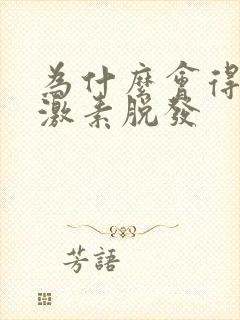 為什麼會得
激素脫發
芳語